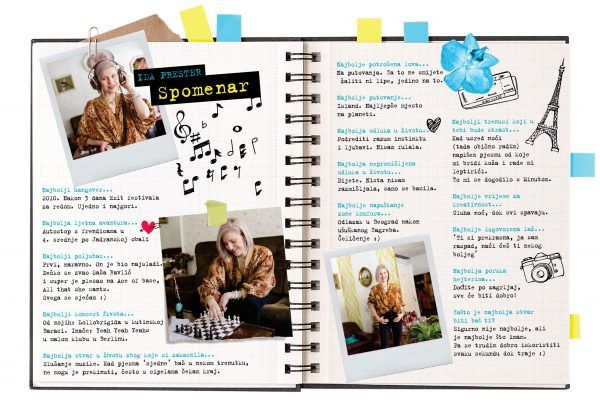 IDA PRESTER
Spomenar
Najbolji hangover...
2010. Nakon 3 dana Exit festivala
za redom. Ujedno i najgori.
Najbolja ljetna avantura...
Autostop s frendicama u
4. srednje po Jadranskoj obali
Najbolji poljubac...
Prvi, naravno. On je bio najslađi.
Dečko se zvao Saša Ravlić
i super je plesao na Ace of base,
All that she wants.
Svega se sjećam :)
Najbolji koncert života...
Od mojih: Lollobrigida u kutinskoj
Baraci. Inače: Yeah Yeah Yeahs
u malom klubu u Berlinu.
Najbolja stvar u životu zbog koje si zakasnila...
Slušanje muzike. Kad pjesma 'sjedne' baš u nekom trenutku,
ne mogu je prekinuti, često u cipelama čekam kraj.
Najbolje potrošena lova...
Na putovanja. Za to ne smijete
žaliti ni lipe, jedino na to.
Najbolje putovanje...
Island. Najljepše mjesto
na planeti.
Najbolja odluka u životu...
Podrediti razum instinktu
i ljubavi. Nisam fulala.
Najbolja nepromišljena
odluka u životu...
Dijete. Ništa nisam
razmišljala, samo se bacila.
Najbolje napuštanje
zone komfora...
Odlazak u Beograd nakon
ušuškanog Zagreba.
Čeličenje :)
Najbolji trenuci koji u
tebi bude strast...
Kad usred noći
(tada obično radim)
napišem pjesmu od koje
mi bridi koža i rade mi
leptirići.
To mi se dogodilo s Minutom.
Najbolje vrijeme za
kreativnost...
Gluha noć, dok svi spavaju.
Najbolje izgovorena laž...
'Ti si prekrasna, ja sam
raspad, naći ćeš li nekog
boljeg'
Najbolja poruka
hejterima...
Dođite po zagrljaj,
sve će biti dobro!
Zašto je najbolja stvar
biti baš ti?
Sigurno nije najbolje, ali
je najbolje što imam.
Pa se trudim dobro iskoristiti
svaku sekundu dok traje :)